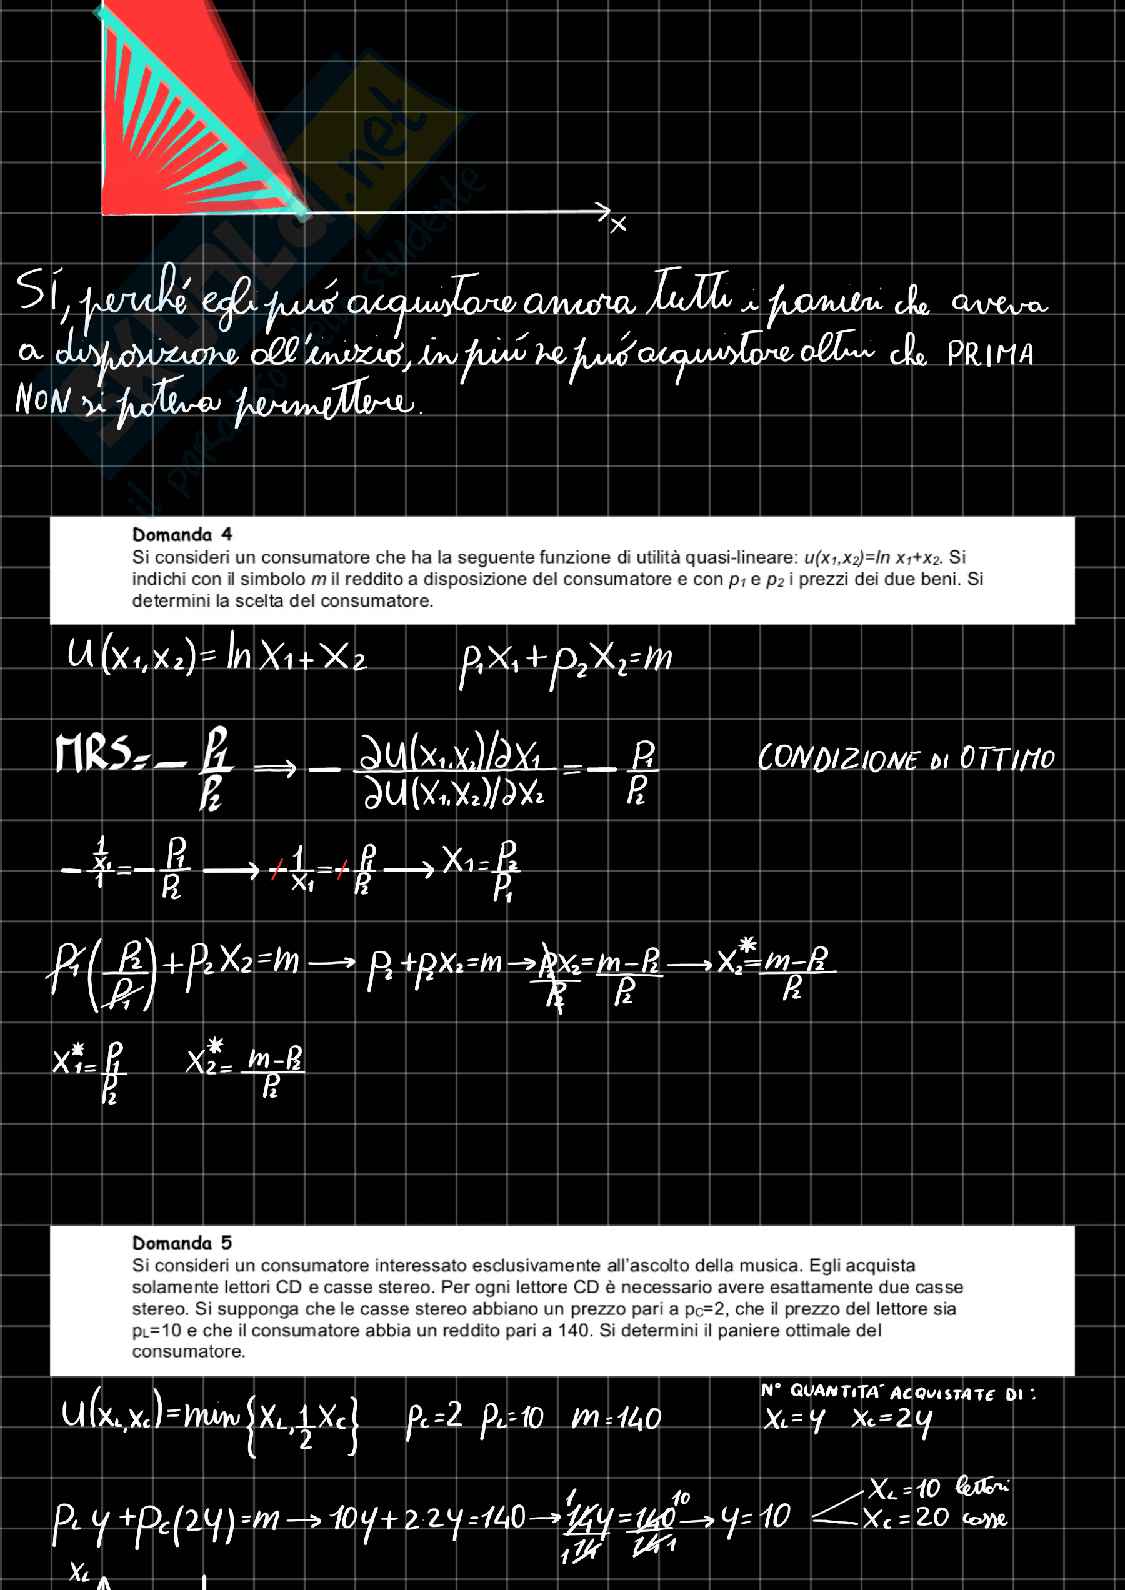 x
SKUOLA.net
il paradiso dello studente
SÍ, perché egli puó acquistare ancora tutti i panieri che aveva
a disposizione all'inizio, in piú ne puó acquistare altri che PRIMA
NON si poteva permettere.
Domanda 4
Si consideri un consumatore che ha la seguente funzione di utilità quasi-lineare: u(x₁,x₂)=ln x₁+x₂. Si
indichi con il simbolo m il reddito a disposizione del consumatore e con p₁ e p₂ i prezzi dei due beni. Si
determini la scelta del consumatore.
U(x₁,x₂)=ln x₁+x₂ p₁x₁+p₂x₂=m
MRS=-p₁/p₂ ⟹ -∂U(x₁,x₂)/∂x₁ / ∂U(x₁,x₂)/∂x₂ = -p₁/p₂ CONDIZIONE DI OTTIMO
-(1/x₁)/1=-p₁/p₂ → -1/x₁=-p₁/p₂ → x₁=p₂/p₁
p₁(p₂/p₁)+p₂x₂=m → p₂+p₂x₂=m → p₂x₂/p₂=m-p₂/p₂ → x₂*=m-p₂/p₂
x₁*=p₁/p₂ x₂*=m-p₂/p₂
Domanda 5
Si consideri un consumatore interessato esclusivamente all'ascolto della musica. Egli acquista
solamente lettori CD e casse stereo. Per ogni lettore CD è necessario avere esattamente due casse
stereo. Si supponga che le casse stereo abbiano un prezzo pari a pC=2, che il prezzo del lettore sia
pL=10 e che il consumatore abbia un reddito pari a 140. Si determini il paniere ottimale del
consumatore.
N° QUANTITA' ACQUISTATE DI:
U(xL,xc)=min{xL,1/2xc} pc=2 pL=10 m=140 xL=y xc=2y
xL=10 lettori
pLy+pc(2y)=m → 10y+2·2y=140 → 14y/14=140/14 → y=10 xc=20 casse
xL